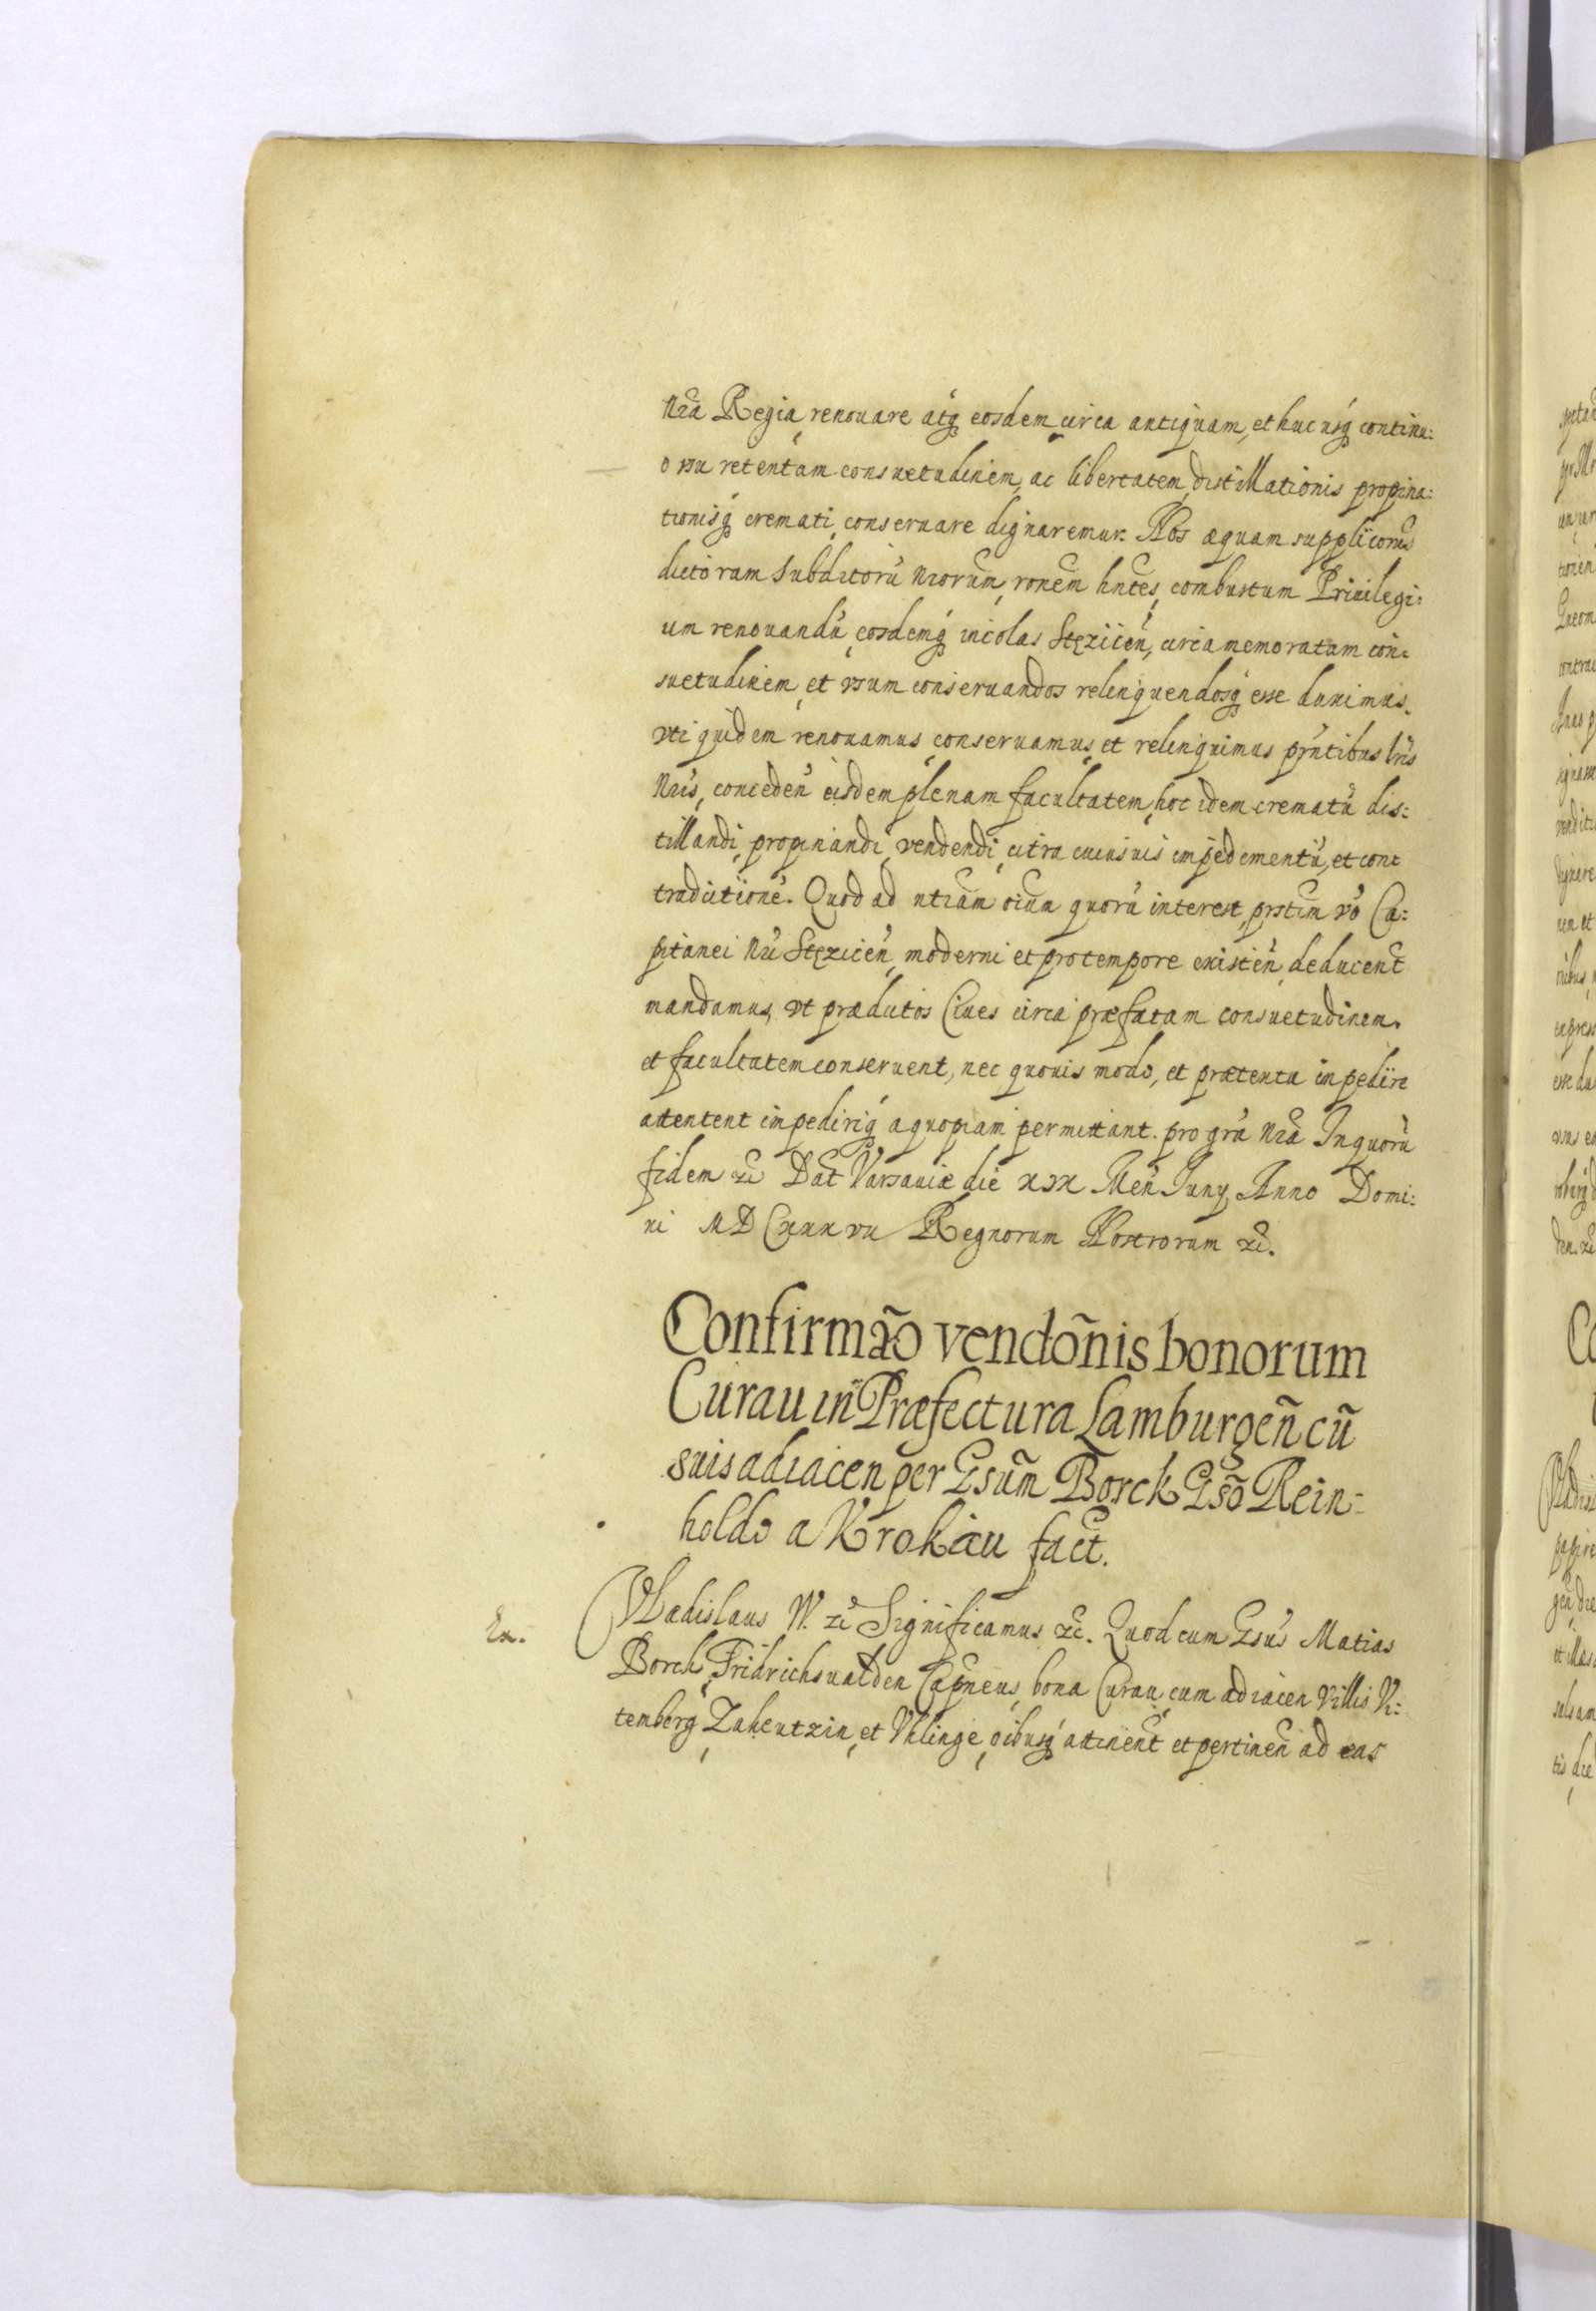 Nrã Regia, renouare atq́ eosdem circa antiquam, et huc usq́ continu:
o usu retentam consuetudinem, ac libertatem, distillationis propina:
tionisq́ cremati, conseruare dignaremur. Nos æquam supplicorũ
dictorum Subditorũ nrorum, ronem hntes, combustum Priuilegi:
um renouandũ, eosdemq́ incolas Stęzicen̄, circa memoratam con:
suetudinem, et usum conseruandos relinquendosq́ esse duximus.
vti quidem renouamus, conseruamus, et relinquimus prñtibus lris
Nris, conceden̄ eisdem plenam facultatem, hoc idem crematũ dis:
tillandi, propinandi, vendendi, citra cuiusuis impedimentũ, et cont
tradictione. Quod ad ntiam oium quorũ interest, prstim vo Ca:
pitanei Nri Stęzicen̄, moderni et pro tempore existen̄, deducent
mandamus, vt prædictos Ciues circa præfatam consuetudinem.
et facultatem conseruent, nec quouis modo, et prætentu inpedire
attentent impediriq́ a quopiam permittant. pro gra nra In quorũ
fidem &c Dat Varsauiæ die xix Men̄ Iuny Anno Domi:
ni MDCxxxvii Regnorum Nostrorum &c.
Confirmão vendõnis bonorum
Curau in Præfectura Lamburgen̄ cũ
suis adiacen̄ per Gsũm Borck Gsõ Rein:
holdo a Krokau fact.
Ex. Vladislaus IV. &c Significamus &c. Quod cum Gsus Matias
Borck, Fridrichsualden Capneus, bona Curau, cum adiacen Villis Vi:
temberg, Zakeutzin, et Vhlinge, oibusq́ attinent et pertinen̄ ad eas